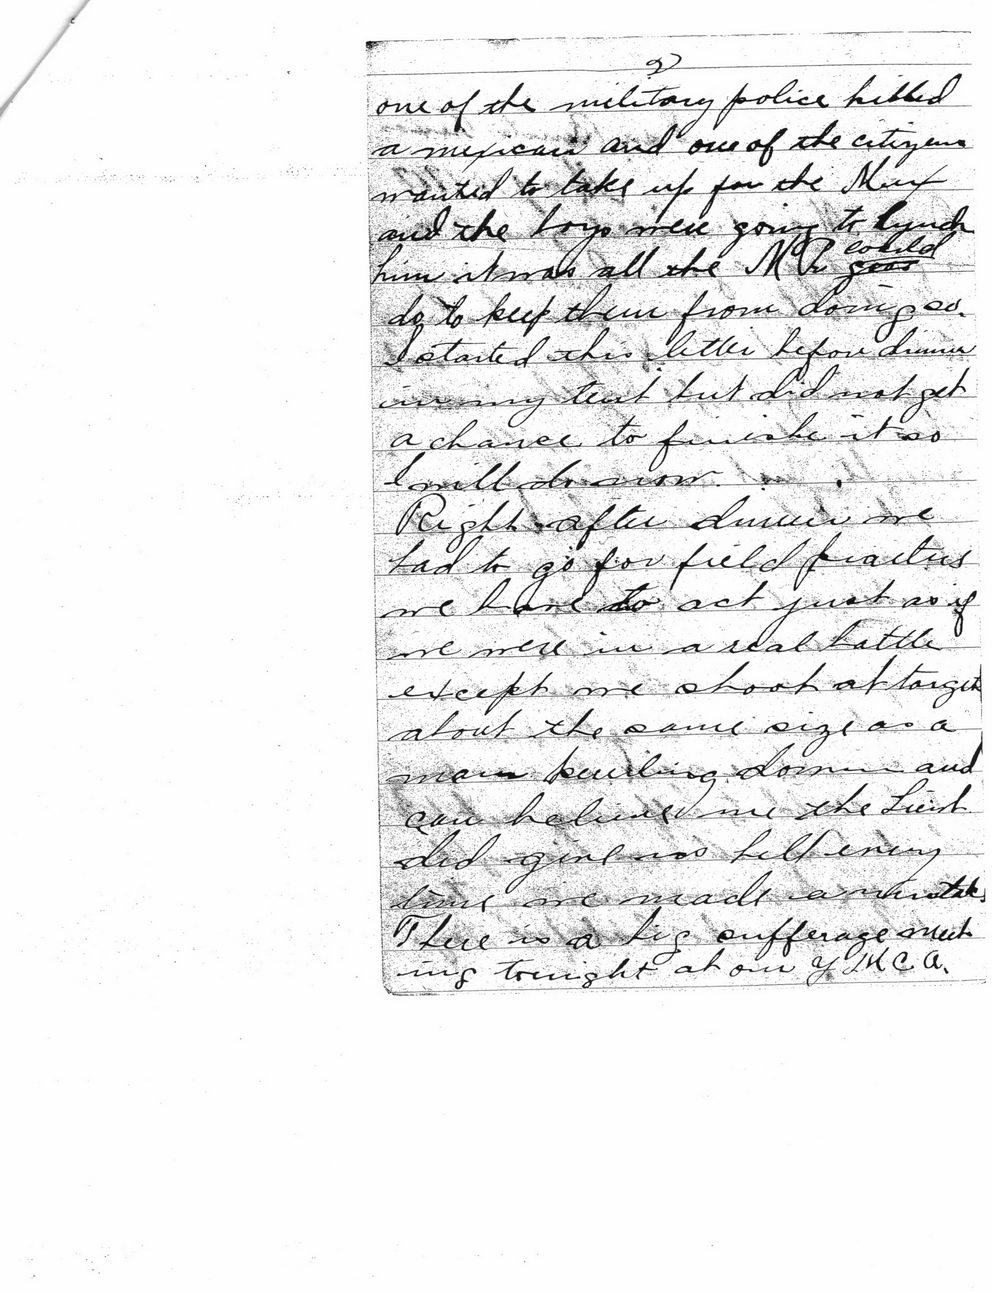 2
one of the military police killed
a mexican and one of the citizens
wanted to take up for the Mex
and the boys were going to lynch
him it was all the M P. could
do to keep them from doing so.
I started this letter before dinner
in my tent but did not get
a chance to finishe it so
I will do now.
Right after dinner we
had to go for field practius
we have to act just as if
we were in a real battle
except we shoot at targets
about the same size as a
man kneeling down and
can believe me the Lieut
did give us hell every
time we made a mistake
There is a big sufferage meet
ing tonight at our Y M C A.